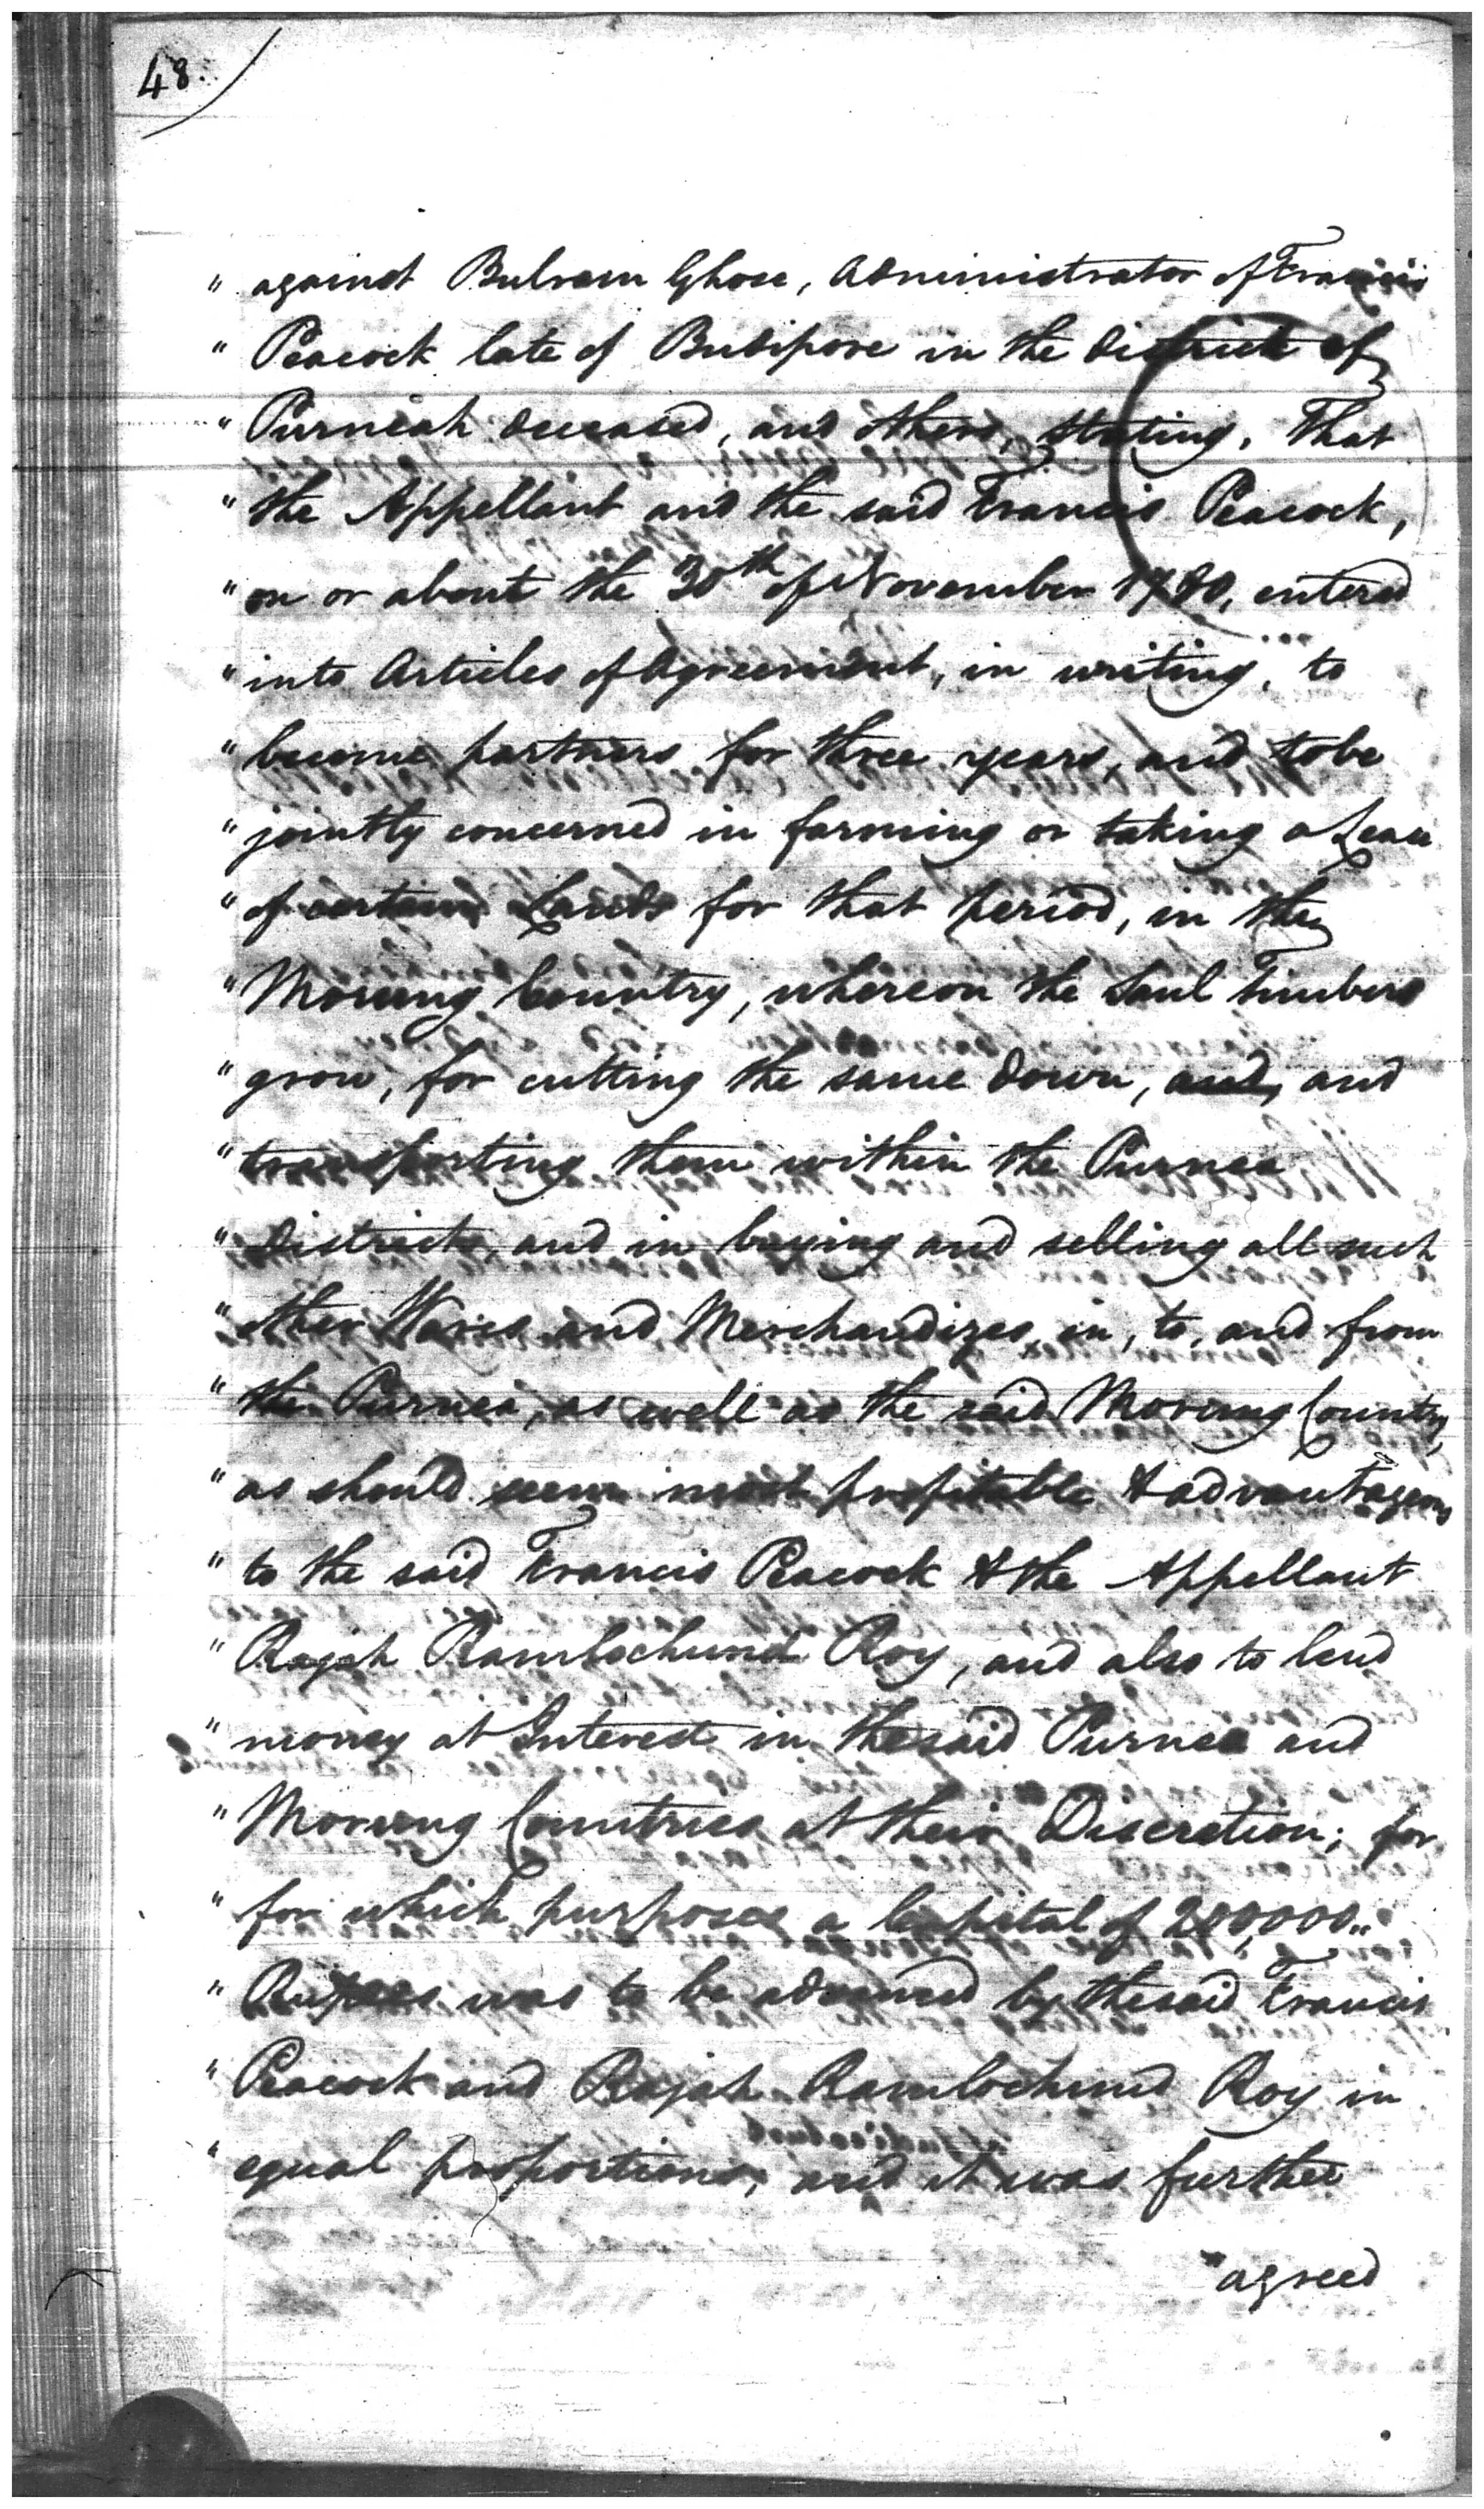 48.
" against Bulram Ghose, Administrator of Francis
" Peacock late of Budipore in the District of
" Purneah deceased, and others, stating, That
" the Appellant and the said Francis Peacock,
" on or about the 30th of November 1780, entered
" into Articles of Agreement, in writing, to
" become partners for three years, and to be
" jointly concerned in farming or taking a Lease
" of certain Lands for that period, in the
" Morung Country, whereon the Saul Timbers
" grow, for cutting the same down, and, and
" transporting them within the Purnea
" Districts, and in buying and selling all such
" other Wares and Merchandizes, in, to, and from
" the Purnea, as well as the said Morung Country,
" as should seem most profitable & advantageous
" to the said Francis Peacock & the Appellant
" Rajah Ramlochund Roy, and also to lend
" money at Interest in the said Purnea and
" Morung Countries at their Discretion; for
" for which purposes a Capital of 200,000"
" Rupees was to be advanced by the said Francis
" Peacock and Rajah Ramlochund Roy in
" equal proportions; and it was further
" agreed